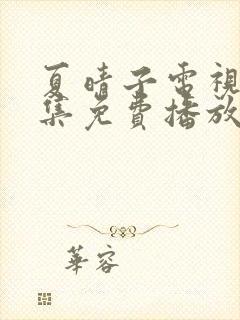 夏晴子電視
集免費播放
華容